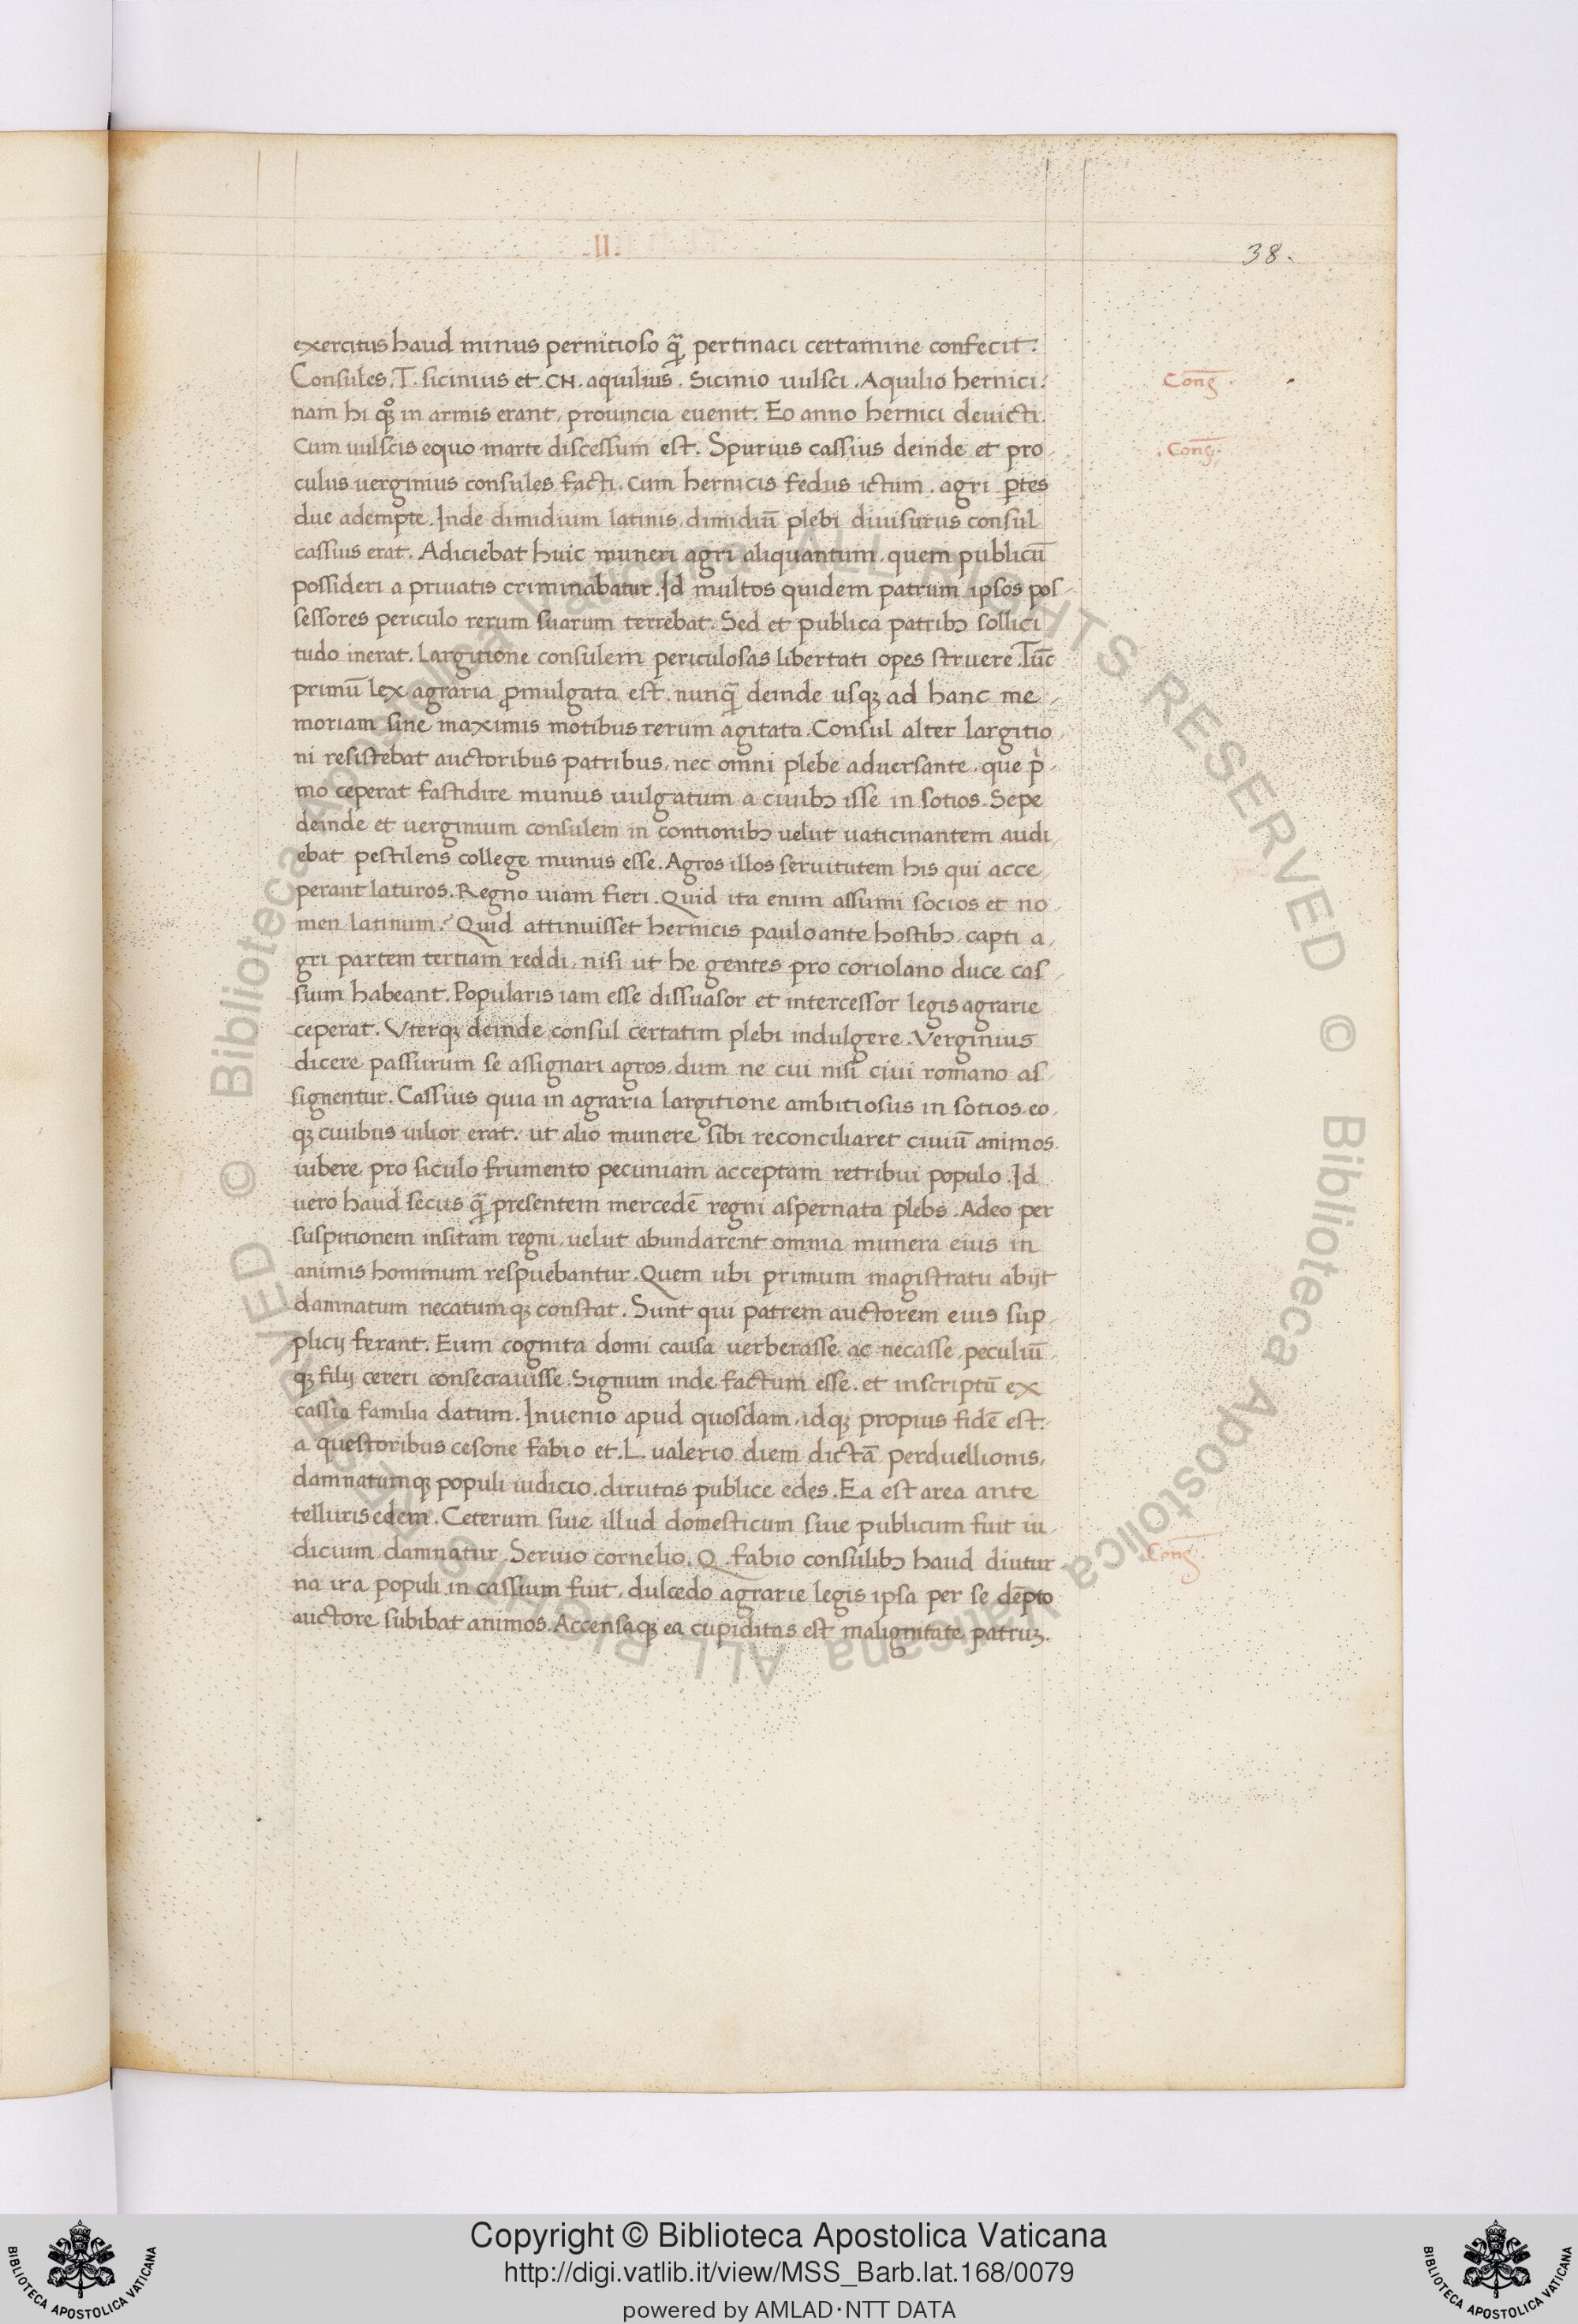 .II.
38.
exercitus haud minus pernitioso q̃ pertinaci certamine confecit.
Consules. T. sicinius et. CN. aquilius. Sicinio uulsci. Aquilio hernici:
Conss̃.
nam hi quoqꝫ in armis erant, prouincia euenit. Eo anno hernici deuicti.
Cum uulscis equo marte discessum est. Spurius cassius deinde et pro
.Conss̃.
culus uerginius consules facti. Cum hernicis fedus ictum. agri ꝑtes
due adempte. Inde dimidium latinis, dimidiũ plebi diuisurus consul
cassius erat. Adiciebat huic muneri agri aliquantum, quem publicũ
possideri a priuatis criminabatur. Id multos quidem patrum ipsos pos
sessores periculo rerum suarum terrebat. Sed et publica patribꝫ sollici
tudo inerat. Largitione consulem periculosas libertati opes struere. Tũc
primũ lex agraria ꝓmulgata est. nunq̃ deinde usqꝫ ad hanc me
moriam sine maximis motibus rerum agitata. Consul alter largitio
ni resistebat auctoribus patribus, nec omni plebe aduersante, que pͥ
mo ceperat fastidire munus uulgatum a ciuibꝫ isse in sotios. Sepe
deinde et uerginium consulem in contionibꝫ uelut uaticinantem audi
ebat pestilens college munus esse. Agros illos seruitutem his qui acce
perant laturos. Regno uiam fieri. Quid ita enim assumi socios et no
men latinum? Quid attinuisset hernicis paulo ante hostibꝫ, capti a
gri partem tertiam reddi, nisi ut he gentes pro coriolano duce cas
sium habeant. Popularis iam esse dissuasor et intercessor legis agrarie
ceperat. Vterqꝫ deinde consul certatim plebi indulgere. Verginius
dicere passurum se assignari agros, dum ne cui nisi ciui romano as
signentur. Cassius quia in agraria largitione ambitiosus in sotios, eo
qꝫ ciuibus uilior erat, ut alio munere sibi reconciliaret ciuiũ animos
iubere pro siculo frumento pecuniam acceptam retribui populo. Id
uero haud secus q̃ presentem mercedẽ regni aspernata plebs. Adeo per
suspitionem insitam regni, uelut abundarent omnia munera eius in
animis hominum respuebantur. Quem ubi primum magistratu abijt
damnatum necatumqꝫ constat. Sunt qui patrem auctorem eius sup
plicij ferant. Eum cognita domi causa uerberasse ac necasse, peculiũ
qꝫ filij cereri consecrauisse. Signum inde factum esse. et inscriptũ ex
cassia familia datum. Inuenio apud quosdam, idqꝫ propius fidẽ est.
a questoribus cesone fabio et. L. ualerio diem dictã perduellionis,
damnatumqꝫ populi iudicio, dirutas publice edes. Ea est area ante
telluris edem. Ceterum siue illud domesticum siue publicum fuit iu
dicium damnatur. Seruio cornelio. Q. fabio consulibꝫ haud diutur
Conss̃.
na ira populi in cassium fuit, dulcedo agrarie legis ipsa per se dẽpto
auctore subibat animos. Accensaqꝫ ea cupiditas est malignitate patruꝫ.
© Biblioteca Apostolica Vaticana ALL RIGHTS RESERVED © Biblioteca Apostolica Vaticana ALL RIGHTS RESERVED
BIBLIOTECA APOSTOLICA VATICANA
Copyright © Biblioteca Apostolica Vaticana
http://digi.vatlib.it/view/MSS_Barb.lat.168/0079
powered by AMLAD·NTT DATA
BIBLIOTECA APOSTOLICA VATICANA